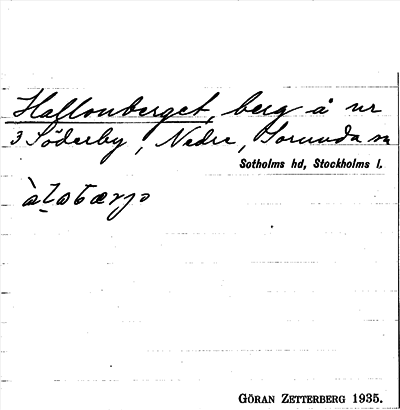 Hallonberget, berg å nr
3 Söderby, Nedre, Sorunda sn
Sotholms hd, Stockholms l.
GÖRAN ZETTERBERG 1935.